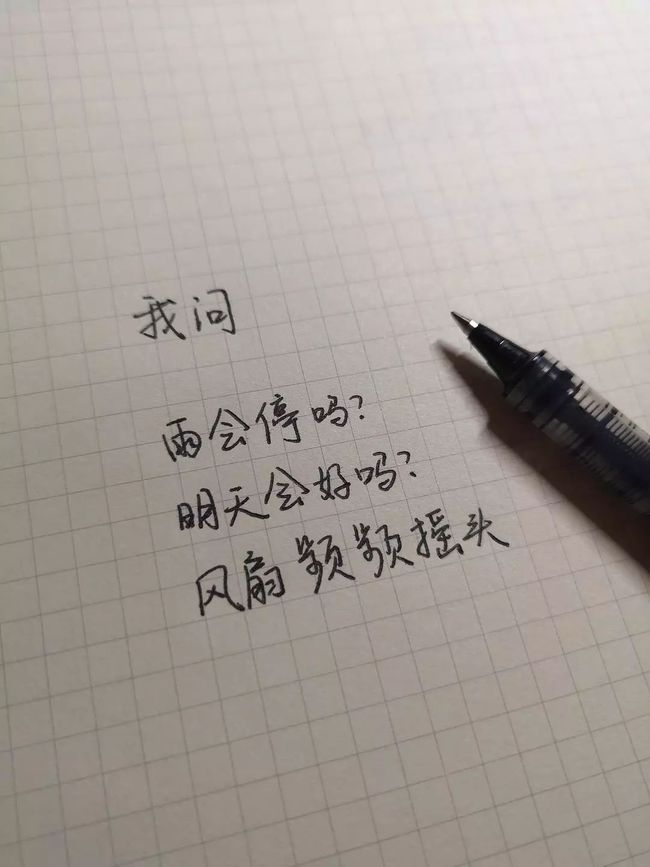 我问
雨会停吗？
明天会好吗？
风扇频频摇头